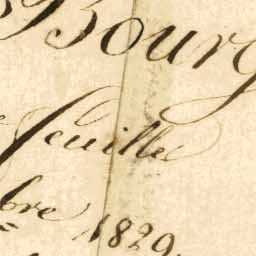 Bourg
feuillet
bre 1829